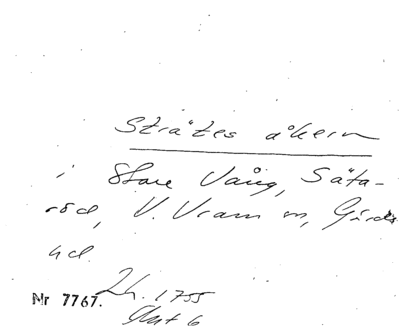 Strätes åkern
i Stare Vång, Säta-
röd, V. Vram sn, Gärds
hd.
Nr 7767. Lh. 1755
Akt 6